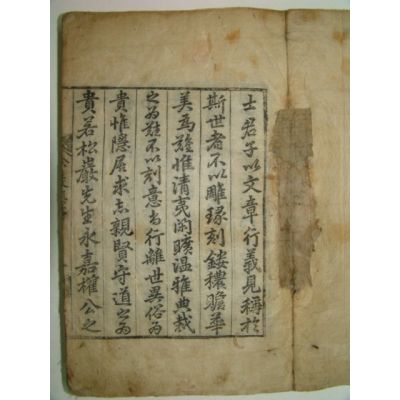 士君子以文章行義見稱於
斯世者不以雕琢刻鏤穠贍華
美爲難惟清夷閑曠溫雅典裁
之爲難不以刻意尙行離世異俗爲
貴惟隱居求志親賢守道之爲
貴若松巖先生永嘉權公之